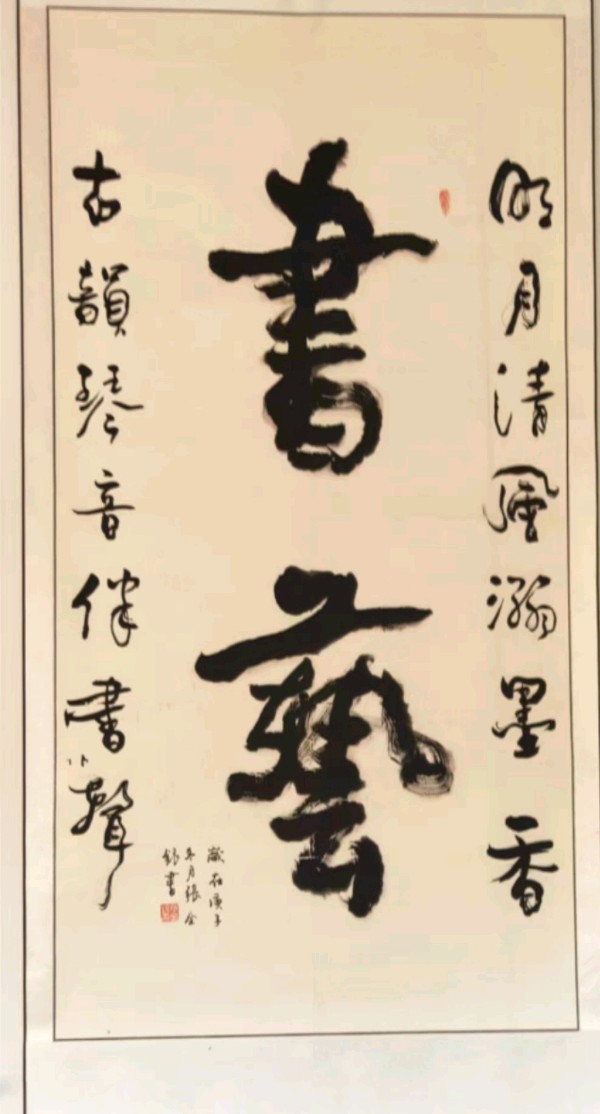 明月清風瀚墨香
書藝
古韻琴音伴書聲
歲在庚子
冬月張全
書